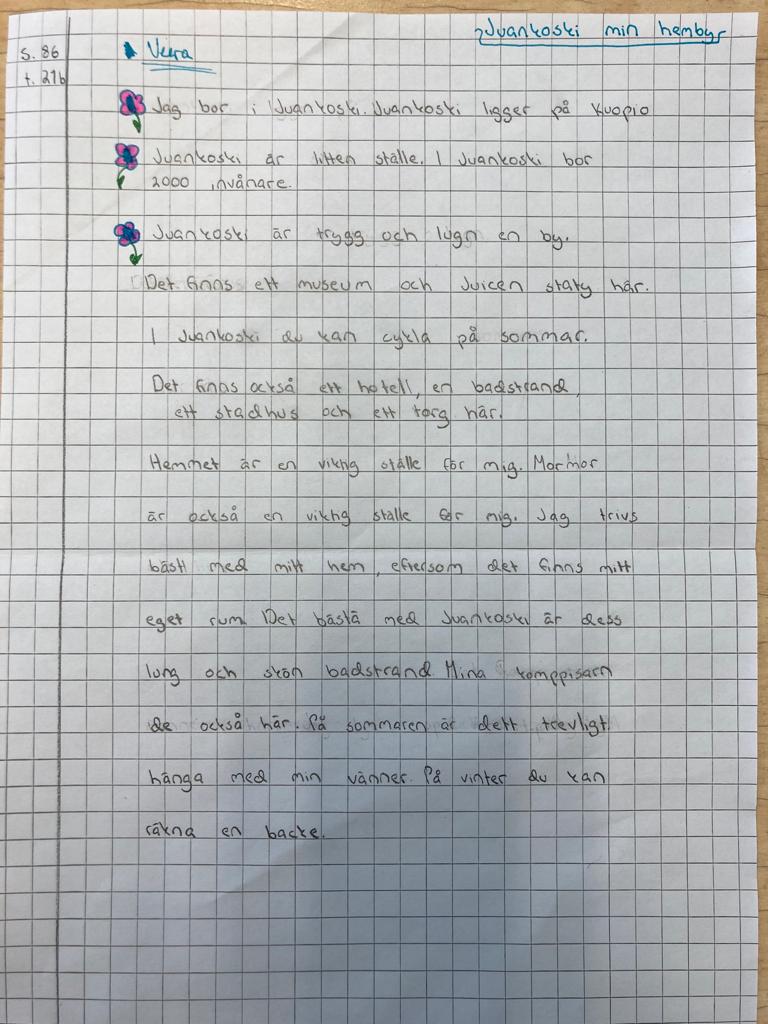 Juankoski min hemby
s. 86
t. 21b
Veera
Jag bor i Juankoski. Juankoski ligger på Kuopio
Juankoski är litten ställe. I Juankoski bor
2000 invånare.
Juankoski är trygg och lugn en by.
Det finns ett museum och Juicen staty här.
I Juankoski du kan cykla på sommar.
Det finns också ett hotell, en badstrand,
ett stadhus och ett torg här.
Hemmet är en viktig ställe för mig. Mormor
är också en viktig ställe för mig. Jag trivs
bäst med mitt hem, eftersom det finns mitt
eget rum. Det bästä med Juankoski är dess
lung och skön badstrand. Mina komppisarn
de också här. På sommaren är dett trevligt
hänga med min vänner. På vinter du kan
räkna en backe.